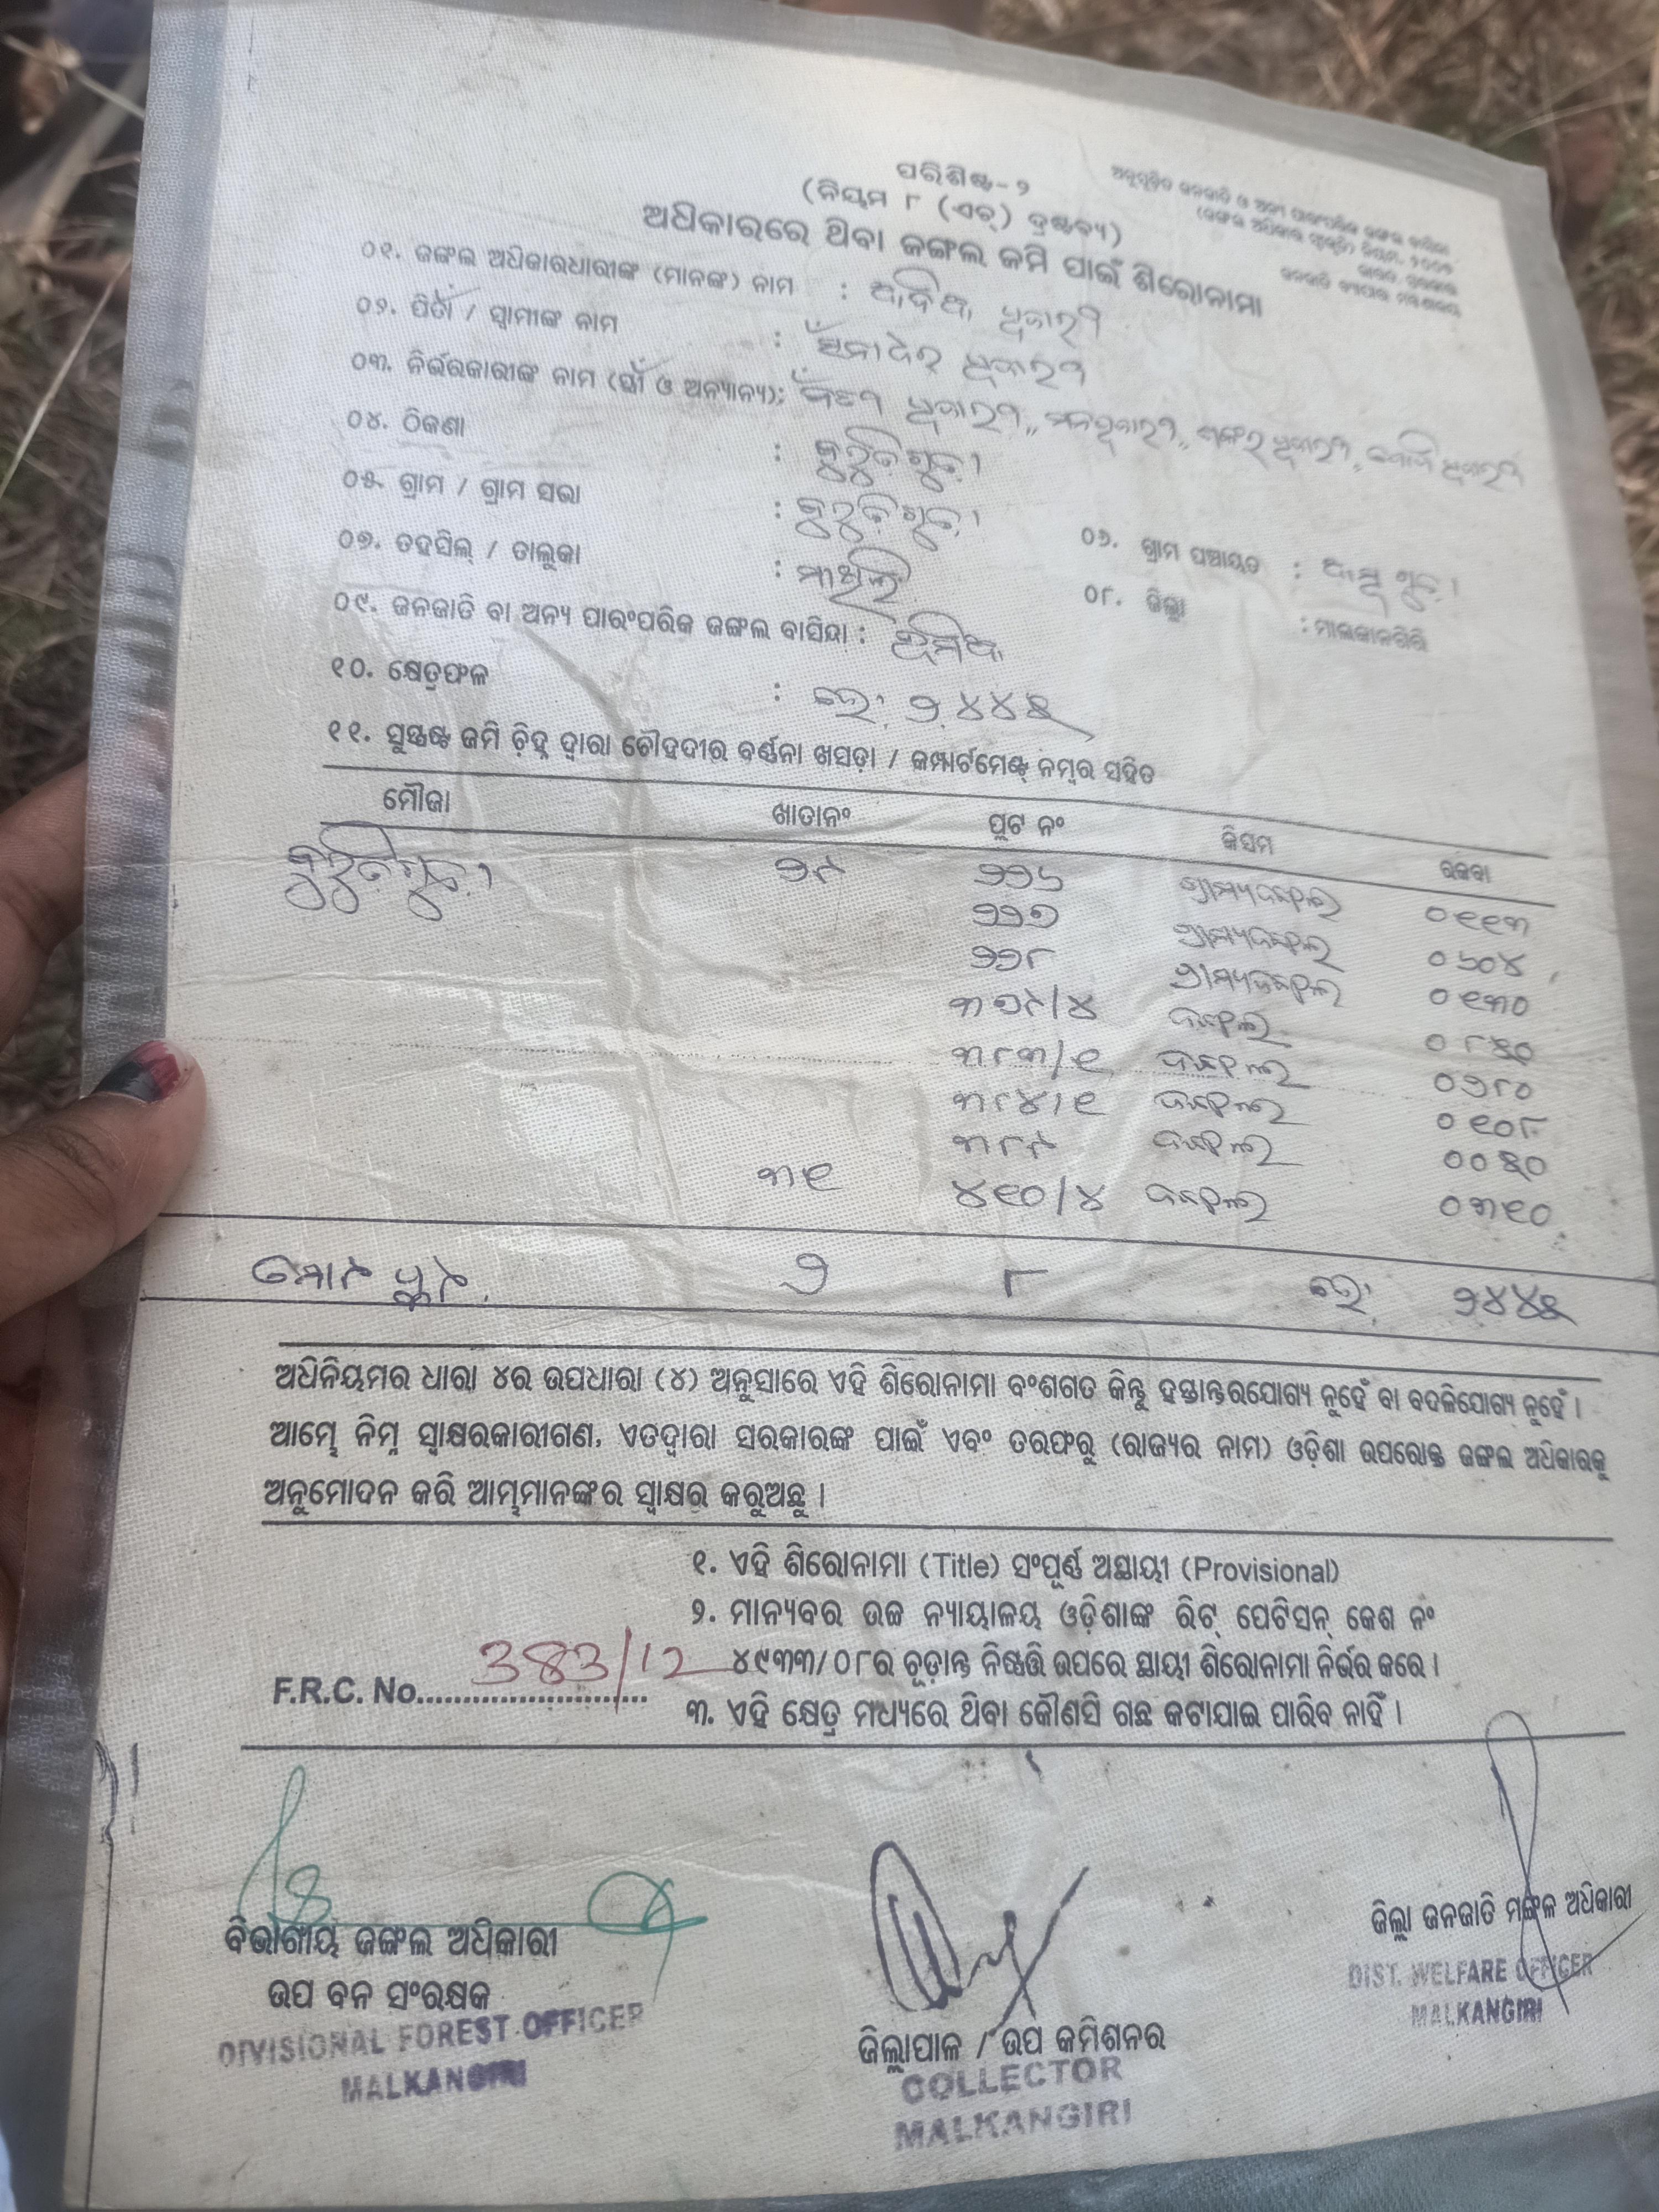 ପରିଶିଷ୍ଟ-୨
(ନିୟମ ୮ (ଏଚ୍) ଦ୍ରଷ୍ଟବ୍ୟ)
ଅନୁସୂଚିତ ଜନଜାତି ଓ ଅନ୍ୟ ପାରଂପରିକ ଜଙ୍ଗଲ ବାସିନ୍ଦା
(ଜଙ୍ଗଲ ଅଧିକାର ସ୍ୱୀକୃତି) ନିୟମ, ୨୦୦୭
ଭାରତ ସରକାର
ଜନଜାତି ବ୍ୟାପାର ମନ୍ତ୍ରଣାଳୟ
ଅଧିକାରରେ ଥିବା ଜଙ୍ଗଲ ଜମି ପାଇଁ ଶିରୋନାମା
୦୧. ଜଙ୍ଗଲ ଅଧିକାରଧାରୀଙ୍କ (ମାନଙ୍କ) ନାମ :
୦୨. ପିତା / ସ୍ୱାମୀଙ୍କ ନାମ :
୦୩. ନିର୍ଭରକାରୀଙ୍କ ନାମ (ସ୍ତ୍ରୀ ଓ ଅନ୍ୟାନ୍ୟ):
୦୪. ଠିକଣା :
୦୫. ଗ୍ରାମ / ଗ୍ରାମ ସଭା :
୦୬. ଗ୍ରାମ ପଞ୍ଚାୟତ :
୦୭. ତହସିଲ୍ / ତାଲୁକା : ମାଥିଲି
୦୮. ଜିଲ୍ଲା : ମାଲକାନଗିରି
୦୯. ଜନଜାତି ବା ଅନ୍ୟ ପାରଂପରିକ ଜଙ୍ଗଲ ବାସିନ୍ଦା :
୧୦. କ୍ଷେତ୍ରଫଳ : ୨.୪୪୫
୧୧. ସୁସ୍ପଷ୍ଟ ଜମି ଚିହ୍ନ ଦ୍ୱାରା ଚୌହଦୀର ବର୍ଣ୍ଣନା ଖସଡ଼ା / କମ୍ପାର୍ଟମେଣ୍ଟ୍ ନମ୍ବର ସହିତ
ମୌଜା ଖାତାନଂ ପ୍ଲଟ ନଂ କିସମ ରକବା
୨୯ ୨୨୬ ଗ୍ରାମ୍ୟଜଙ୍ଗଲ ୦୧୧୩
୨୨୭ ଗ୍ରାମ୍ୟଜଙ୍ଗଲ ୦୬୦୪
୨୨୮ ଗ୍ରାମ୍ୟଜଙ୍ଗଲ ୦୧୩୦
୩୨୯/୪ ଜଙ୍ଗଲ ୦୮୫୦
୩୮୩/୧ ଜଙ୍ଗଲ ୦୨୮୦
୩୮୪/୧ ଜଙ୍ଗଲ ୦୧୦୮
୩୮୯ ଜଙ୍ଗଲ ୦୦୫୦
୩୧ ୪୧୦/୪ ଜଙ୍ଗଲ ୦୩୧୦
ମୋଟ ପ୍ଲଟ ୨ ୮ ୨୪୪୫
ଅଧିନିୟମର ଧାରା ୪ର ଉପଧାରା (୪) ଅନୁସାରେ ଏହି ଶିରୋନାମା ବଂଶଗତ କିନ୍ତୁ ହସ୍ତାନ୍ତରଯୋଗ୍ୟ ନୁହେଁ ବା ବଦଳିଯୋଗ୍ୟ ନୁହେଁ ।
ଆମ୍ଭେ ନିମ୍ନ ସ୍ୱାକ୍ଷରକାରୀଗଣ, ଏତଦ୍ୱାରା ସରକାରଙ୍କ ପାଇଁ ଏବଂ ତରଫରୁ (ରାଜ୍ୟର ନାମ) ଓଡ଼ିଶା ଉପରୋକ୍ତ ଜଙ୍ଗଲ ଅଧିକାରକୁ
ଅନୁମୋଦନ କରି ଆମ୍ଭମାନଙ୍କର ସ୍ୱାକ୍ଷର କରୁଅଛୁ ।
୧. ଏହି ଶିରୋନାମା (Title) ସଂପୂର୍ଣ୍ଣ ଅସ୍ଥାୟୀ (Provisional)
୨. ମାନ୍ୟବର ଉଚ୍ଚ ନ୍ୟାୟାଳୟ ଓଡ଼ିଶାଙ୍କ ରିଟ୍ ପେଟିସନ୍ କେଶ ନଂ
୪୯୩୩/୦୮ର ଚୂଡ଼ାନ୍ତ ନିଷ୍ପତ୍ତି ଉପରେ ସ୍ଥାୟୀ ଶିରୋନାମା ନିର୍ଭର କରେ ।
F.R.C. No. 383/12
୩. ଏହି କ୍ଷେତ୍ର ମଧ୍ୟରେ ଥିବା କୌଣସି ଗଛ କଟାଯାଇ ପାରିବ ନାହିଁ ।
ବିଭାଗୀୟ ଜଙ୍ଗଲ ଅଧିକାରୀ
ଉପ ବନ ସଂରକ୍ଷକ
DIVISIONAL FOREST OFFICER
MALKANGIRI
ଜିଲ୍ଲାପାଳ / ଉପ କମିଶନର
COLLECTOR
MALKANGIRI
ଜିଲ୍ଲା ଜନଜାତି ମଙ୍ଗଳ ଅଧିକାରୀ
DIST. WELFARE OFFICER
MALKANGIRI